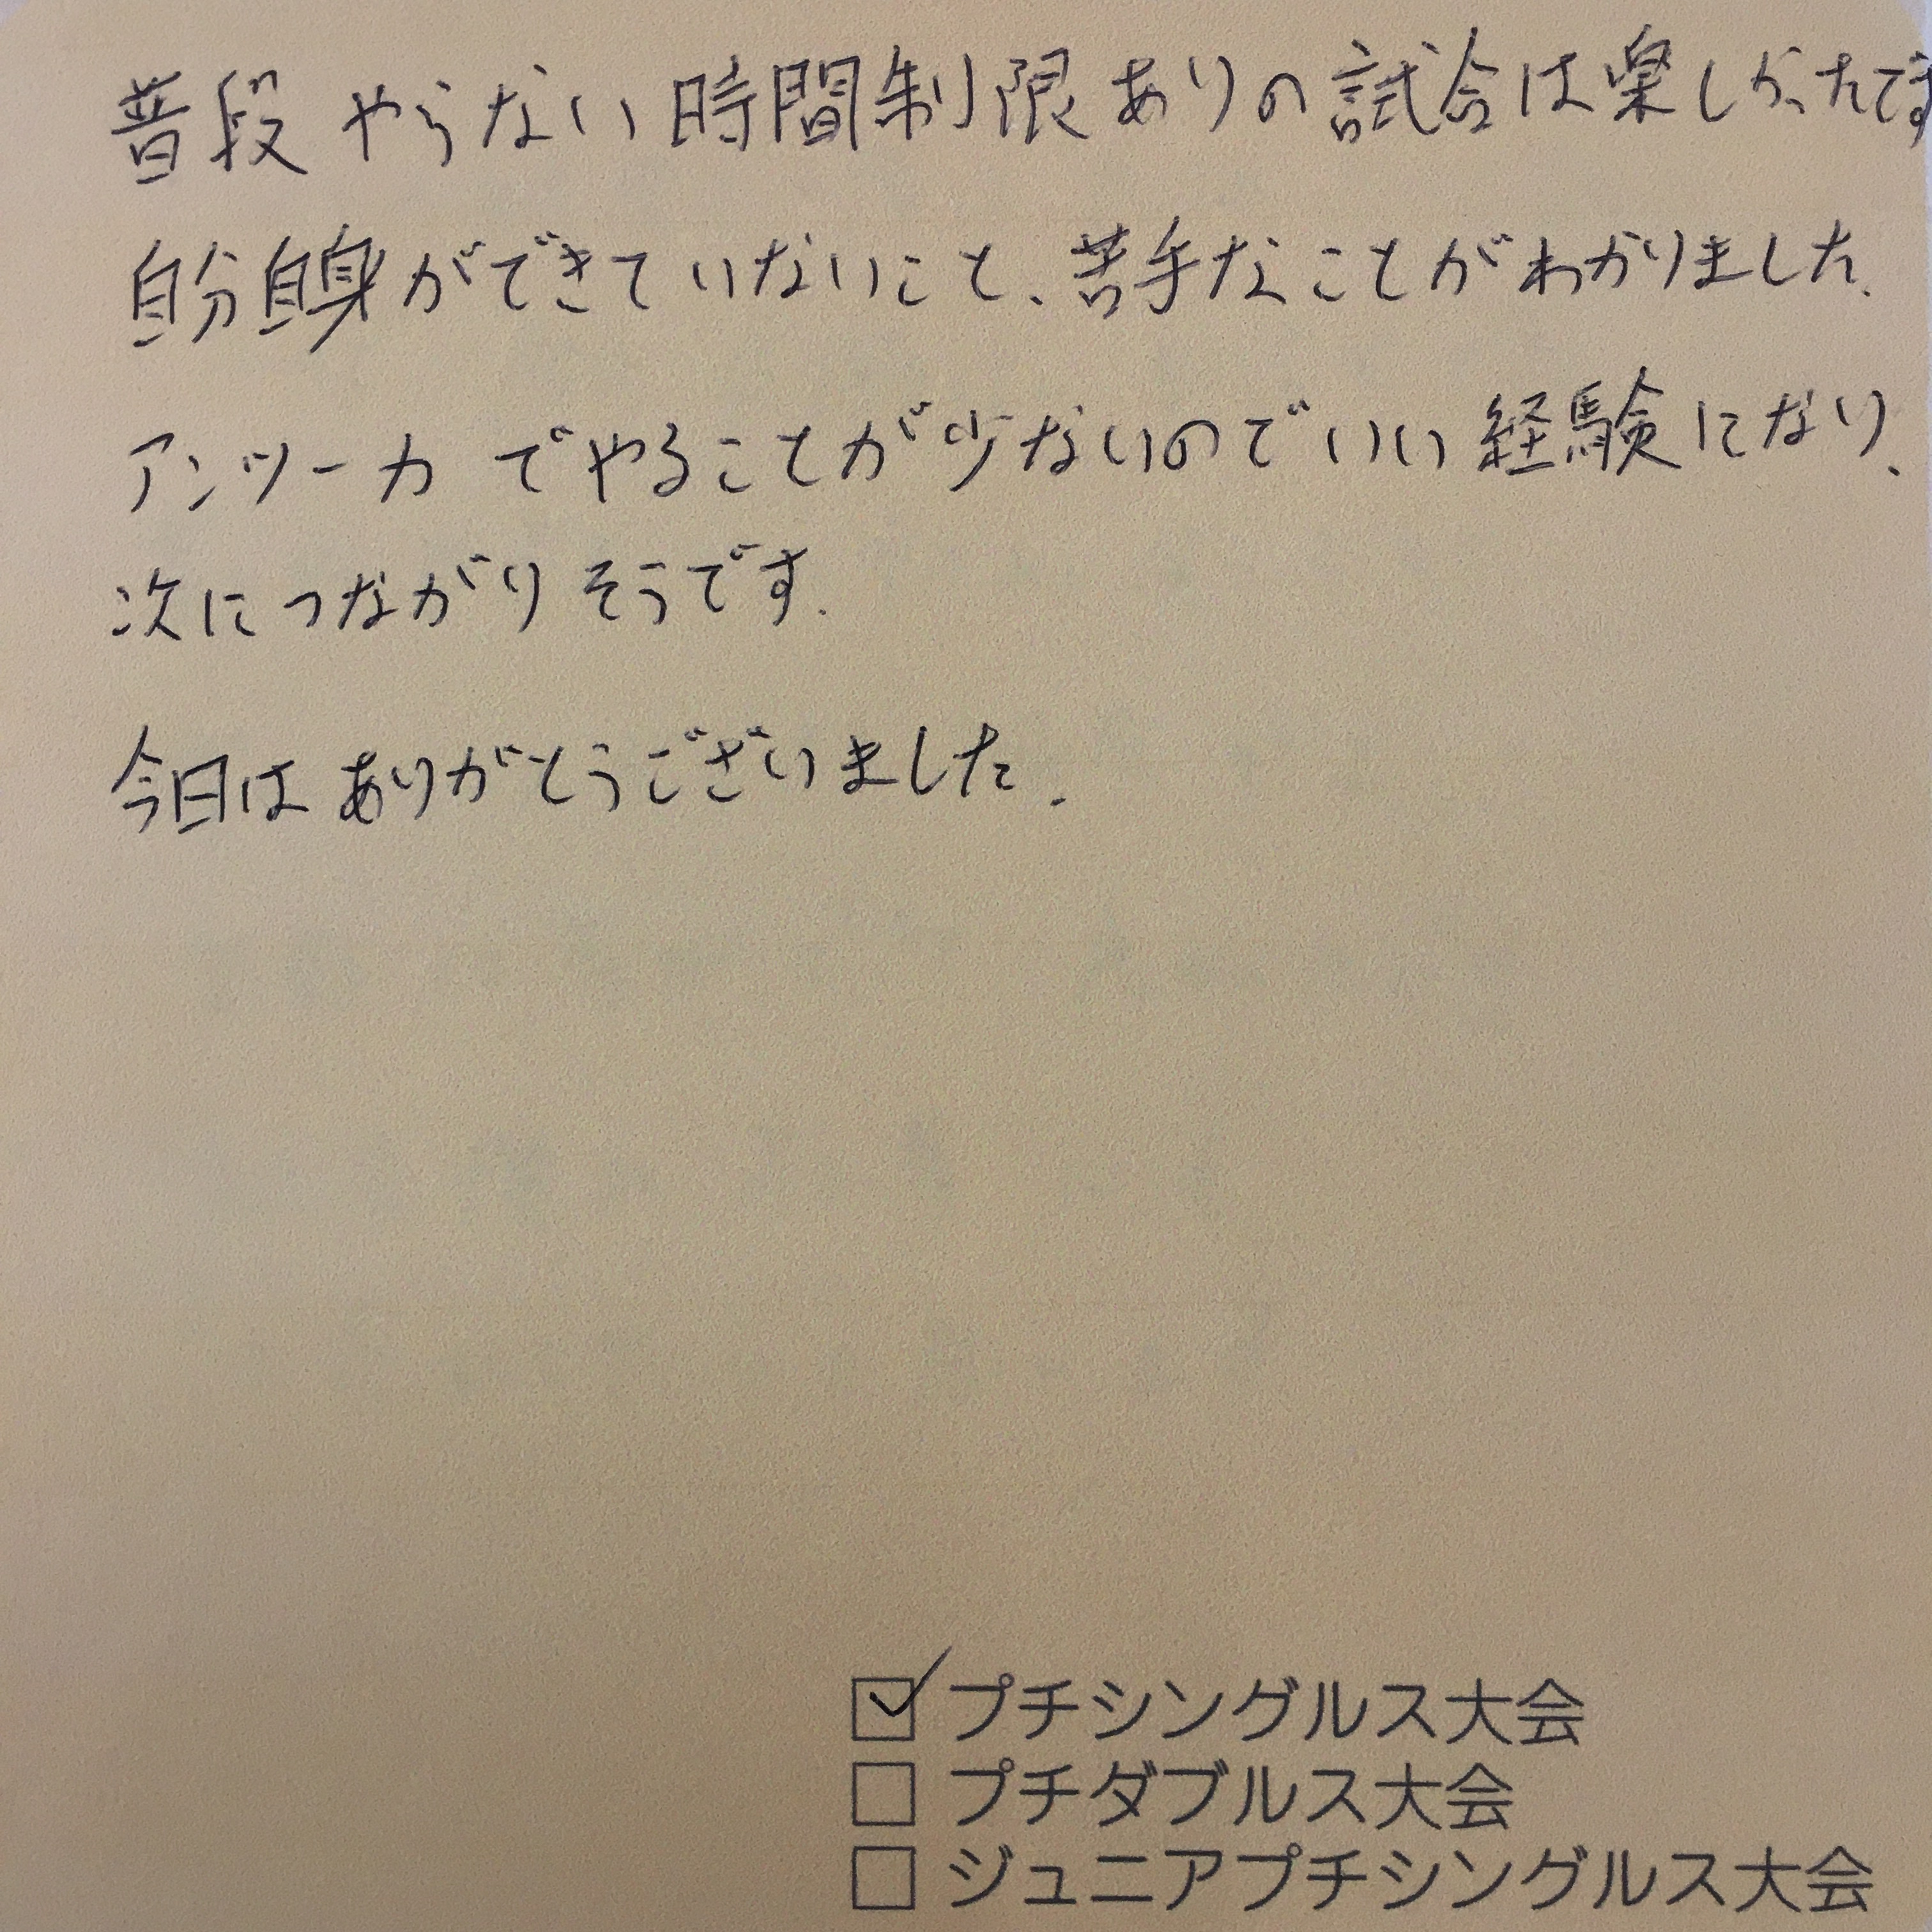 普段やらない時間制限ありの試合は楽しかったです
自分自身ができていないこと、苦手なことがわかりました.
アンツーカでやることが少ないのでいい経験になり、
次につながりそうです.
今日はありがとうございました.
☑ プチシングルス大会
□ プチダブルス大会
□ ジュニアプチシングルス大会